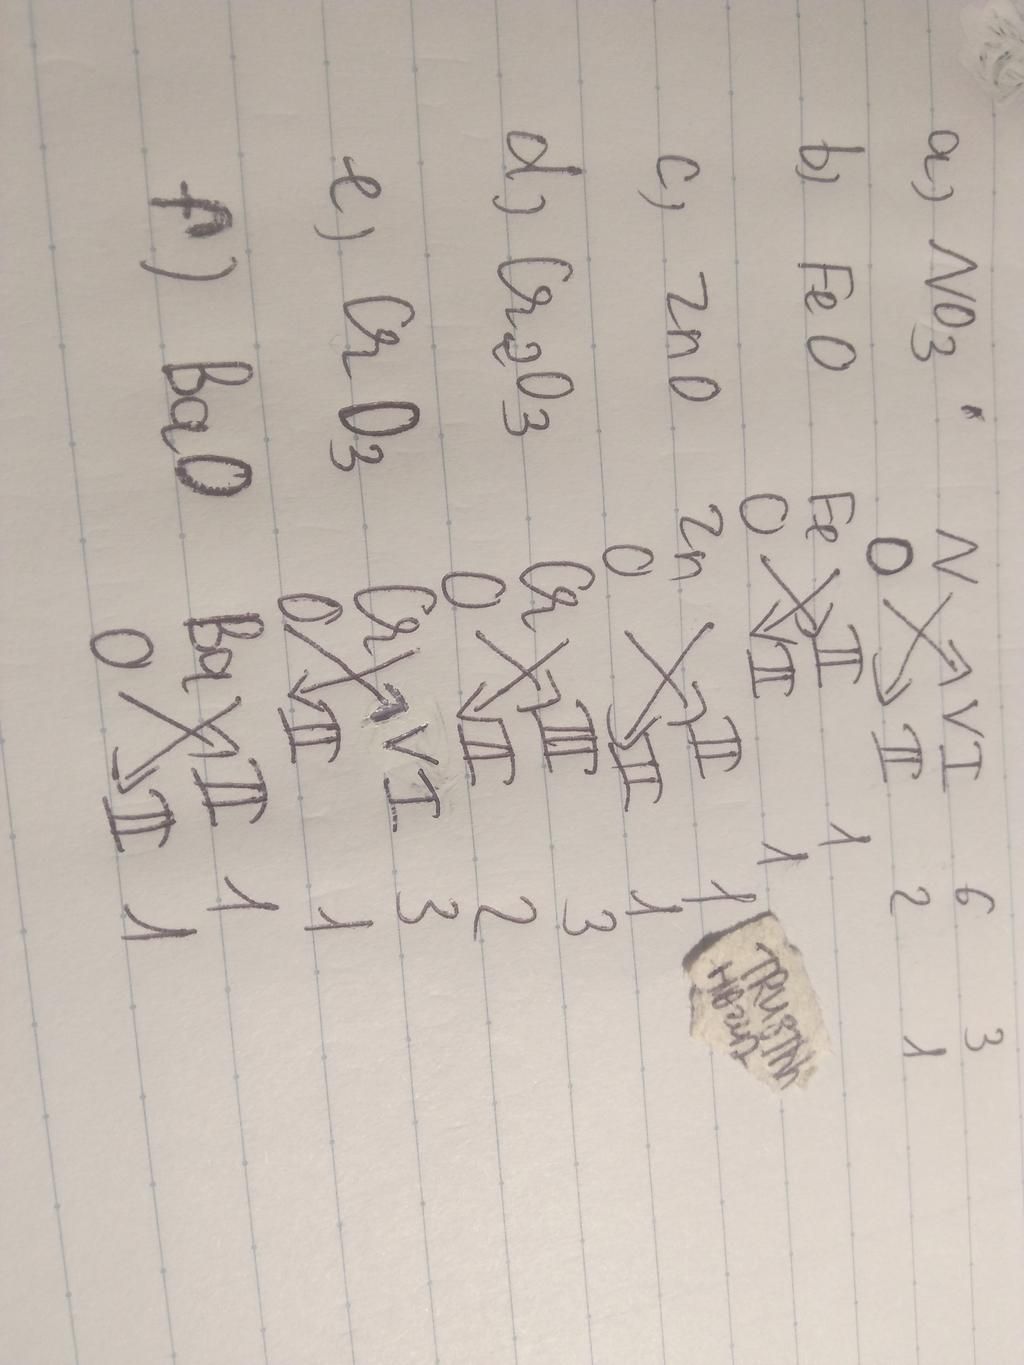 a) NO3 N VI 6 3
O II 2 1
b) FeO Fe II 1
O II 1
c) ZnO Zn II 1
O II 1
d) Cr2O3 Cr III 3
O II 2
e) CrO3 Cr VI 3
O II 1
f) BaO Ba II 1
O II 1